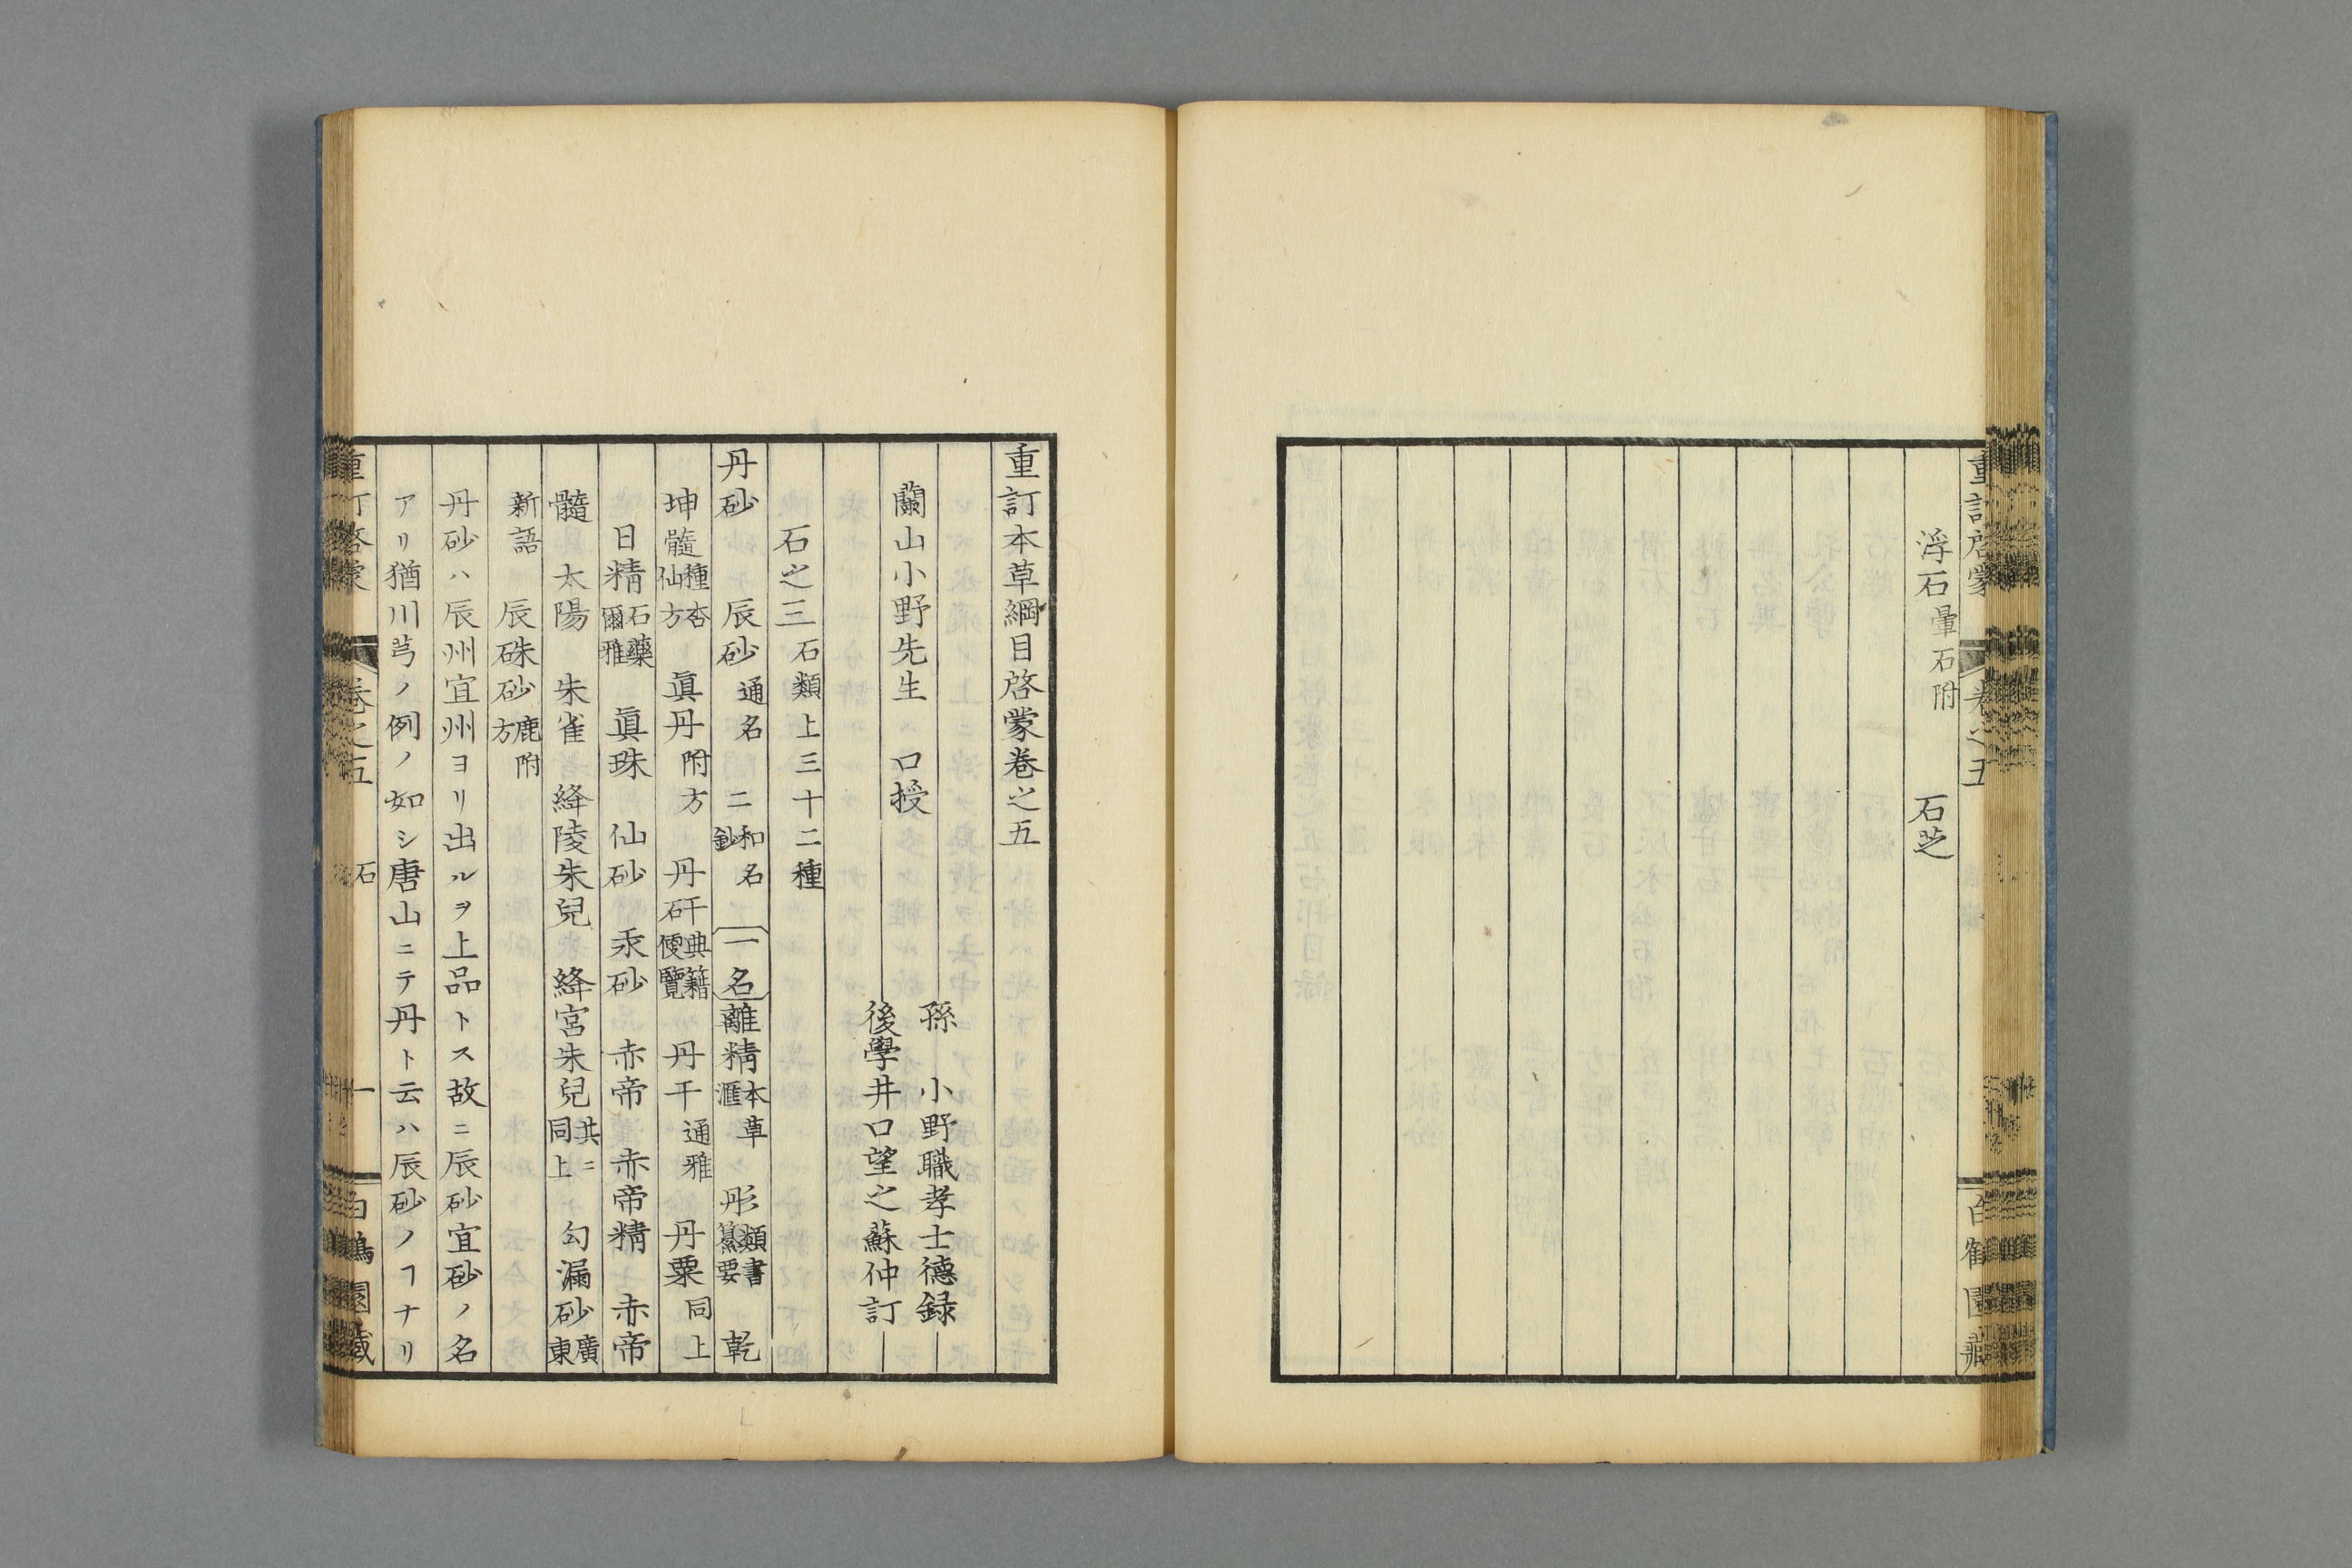 重訂啓蒙 巻之五 百鶴園藏
浮石暈石附 石芝
重訂本草綱目啓蒙巻之五
孫 小野職孝士德録
蘭山小野先生 口授
後學井口望之蘇仲訂
石之三石類上三十二種
丹砂 辰砂通名 二和名鈔 一名離精本草滙 彤類書纂要 乾
坤髓種杏仙方 眞丹附方 丹矸典籍便覽 丹干通雅 丹粟同上
日精石藥爾雅 眞珠 仙砂 汞砂 赤帝 赤帝精 赤帝
髓 太陽 朱雀 絳陵朱兒 絳宮朱兒共ニ同上 勾漏砂廣東
新語 辰硃砂鹿附方
丹砂ハ辰州宜州ヨリ出ルヲ上品トス故ニ辰砂宜砂ノ名
アリ猶川芎ノ例ノ如シ唐山ニテ丹ト云ハ辰砂ノヿナリ
重訂啓蒙 巻之五 石 一 百鶴園藏